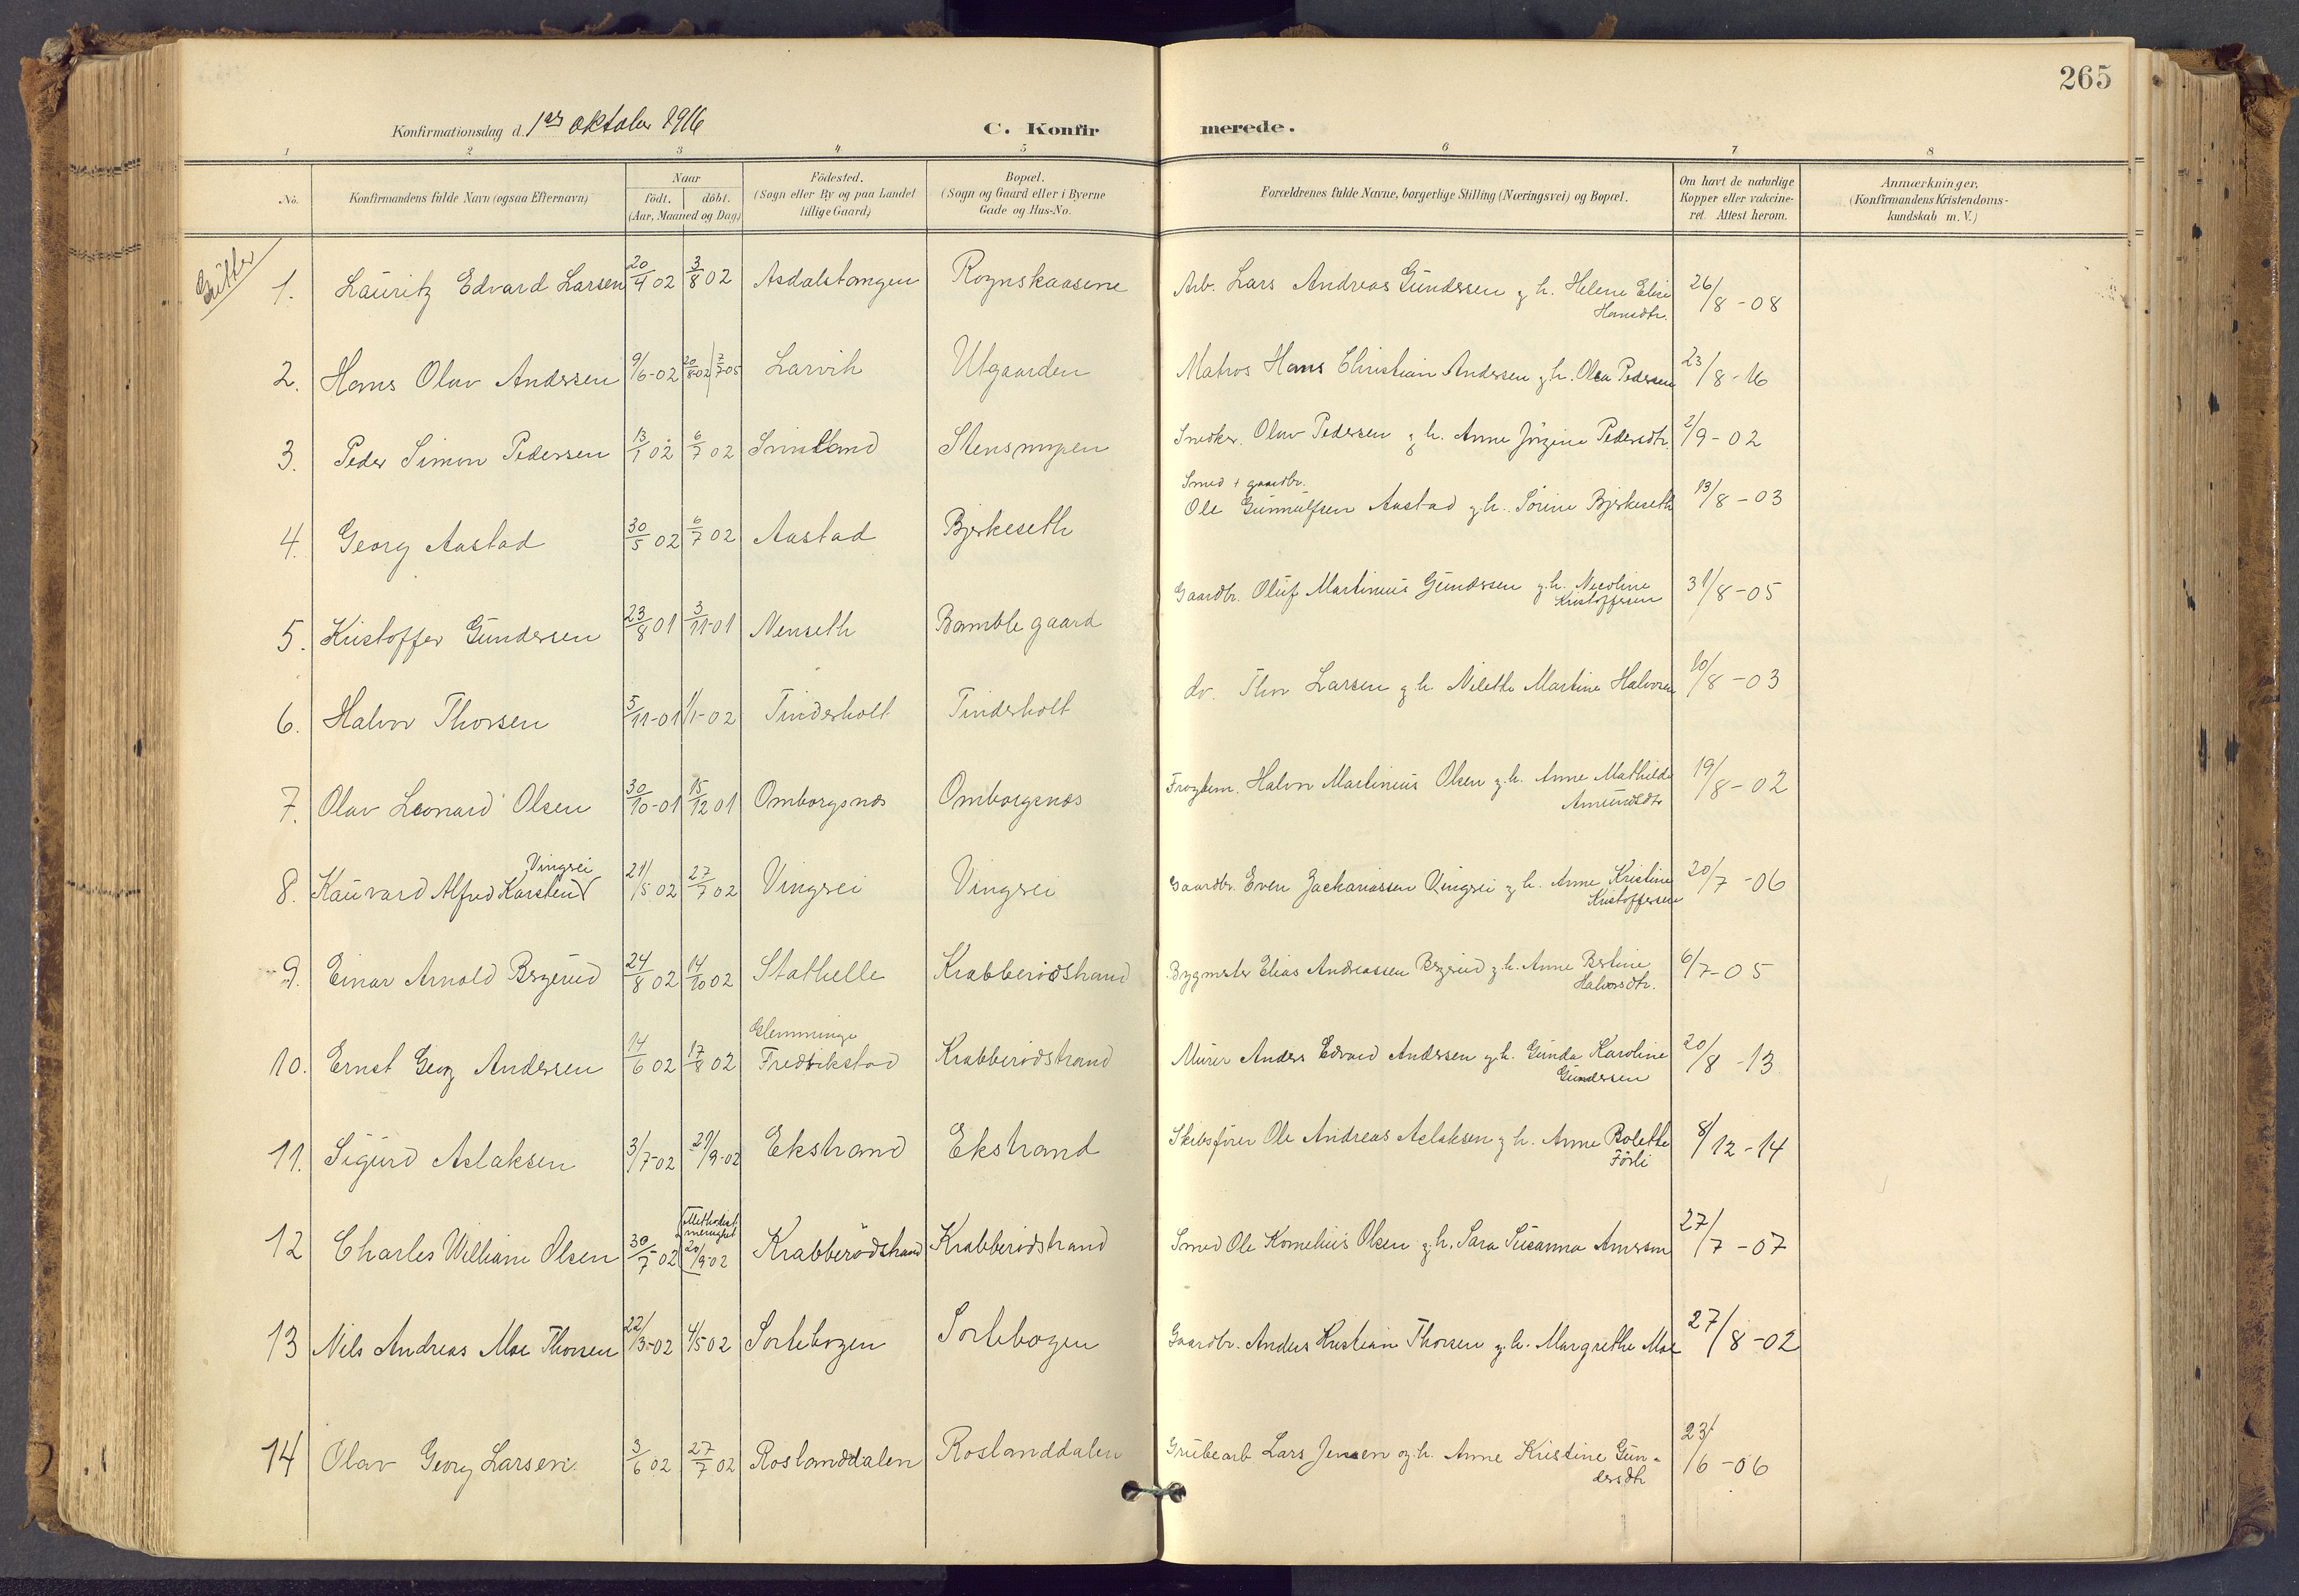 265
Konfirmationsdag d. 1ste oktober 1916
C. Konfirmerede.
1 2 3 4 5 6 7 8
No. Konfirmandens fulde Navn (ogsaa Efternavn) Naar født. døbt. (Aar, Maaned og Dag) Födested. (Sogn eller By og paa Landet tillige Gaard) Bopæl. (Sogn og Gaard eller i Byerne Gade og Hus-No. Forældrenes fulde Navne, borgerlige Stilling (Næringsvei) og Bopæl. Om havt de naturlige Kopper eller vakcineret. Attest herom. Anmærkninger, (Konfirmandens Kristendomskundskab m. V.)
Gutter
1. Lauritz Edvard Larsen 20/4 02 3/8 02 Asdalstangen Rognskaasene Arb. Lars Andreas Gundersen g. h. Helene Elise Hansdtr. 26/8-08
2. Hans Olav Andersen 9/6-02 20/8-02 7/7-05 Larvik Utgaarden Matros Hans Christian Andersen g. h. Olea Pedersen 23/8-16
3. Peder Simon Pedersen 13/1 02 6/7 02 Stensmyren Snedker. Olav Pedersen g. h. Anne Jörgine Pedersdtr. 2/9-02
4. Georg Aastad 30/5 02 6/7 02 Aastad Bjerkeseth Smed + gaardbr. Ole Gunnulfsen Aastad g. h. Sörine Bjerkeseth 13/8-03
5. Kristoffer Gundersen 23/8 01 3/11-01 Nenseth Bamble gaard Gaardbr. Oluf Martinius Gundersen g. h. Nicoline Kristoffersen 31/8-05
6. Halvor Thorsen 5/11-01 1/1-02 Tinderholt Tinderholt do. Thor Larsen g. h. Nilethe Martine Halvorsen 10/8-03
7. Olav Leonard Olsen 30/10-01 15/12 01 Omborgsnes Omborgsnes Halvor Martinius Olsen g. h. Anne Mathilde Amundsdtr 19/8-02
8. Kauvard Alfred Karsten Vingrei 21/5 02 27/7 02 Vingrei Vingrei Gaardbr. Even Zackariassen Vingrei g. h. Anne Kristine Kristoffersen 20/7-06
9. Einar Arnold Bregerud 24/8 02 14/10 02 Stathelle Krabberödstrand Bygmster Elias Andreassen Bregerud g. h. Anne Bertine Halvorsdtr. 6/7-05
10. Ernst Georg Andersen 14/6 02 17/8 02 Glemminge Fredrikstad Krabberödstrand Murer Anders Edvard Andersen g. h. Gunda Karoline Gundersen 20/8-13
11. Sigurd Aslaksen 3/7-02 21/9-02 Ekstrand Ekstrand Skibsfører Ole Andreas Aslaksen g. h. Anne Bolette Förli 8/12-14
12 Charles William Olsen 30/7 02 Methodist menighet 20/9 02 Krabberödstrand Krabberödstrand Smed Ole Kornelius Olsen g. h. Sara Susanna 27/7-07
13 Nils Andreas Moe Thorsen 22/3-02 4/5 02 Sortebogen Sortebogen Gaardbr. Anders Kristian Thorsen g. h. Margrethe Moe 27/8-02
14 Olav Georg Larsen 3/6 02 27/7 02 Roslanddalen Roslanddalen Grubearb Lars Jensen og h. Anne Kristine Gundersdtr 23/6-06